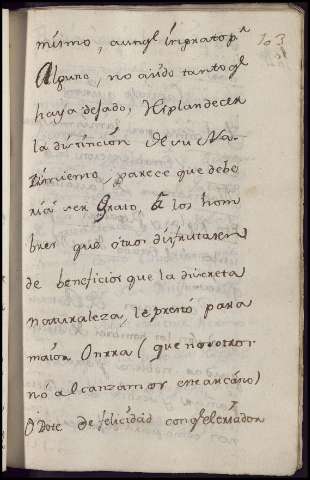 mismo, aunq.e ingrato p.a
Alguno, no ayudo tanto q.e
haya dejado, Resplandecer
la distinción de su Na-
cimiento, parece que debe
riâ ser Grato, â los hom
bres que otros disfrutasen
de beneficios que la discreta
naturaleza, le prestó para
maior Onrra (que nosotros
nó alcanzamos este arcáno)
ó Dote de felicidad con q.e el criador
103